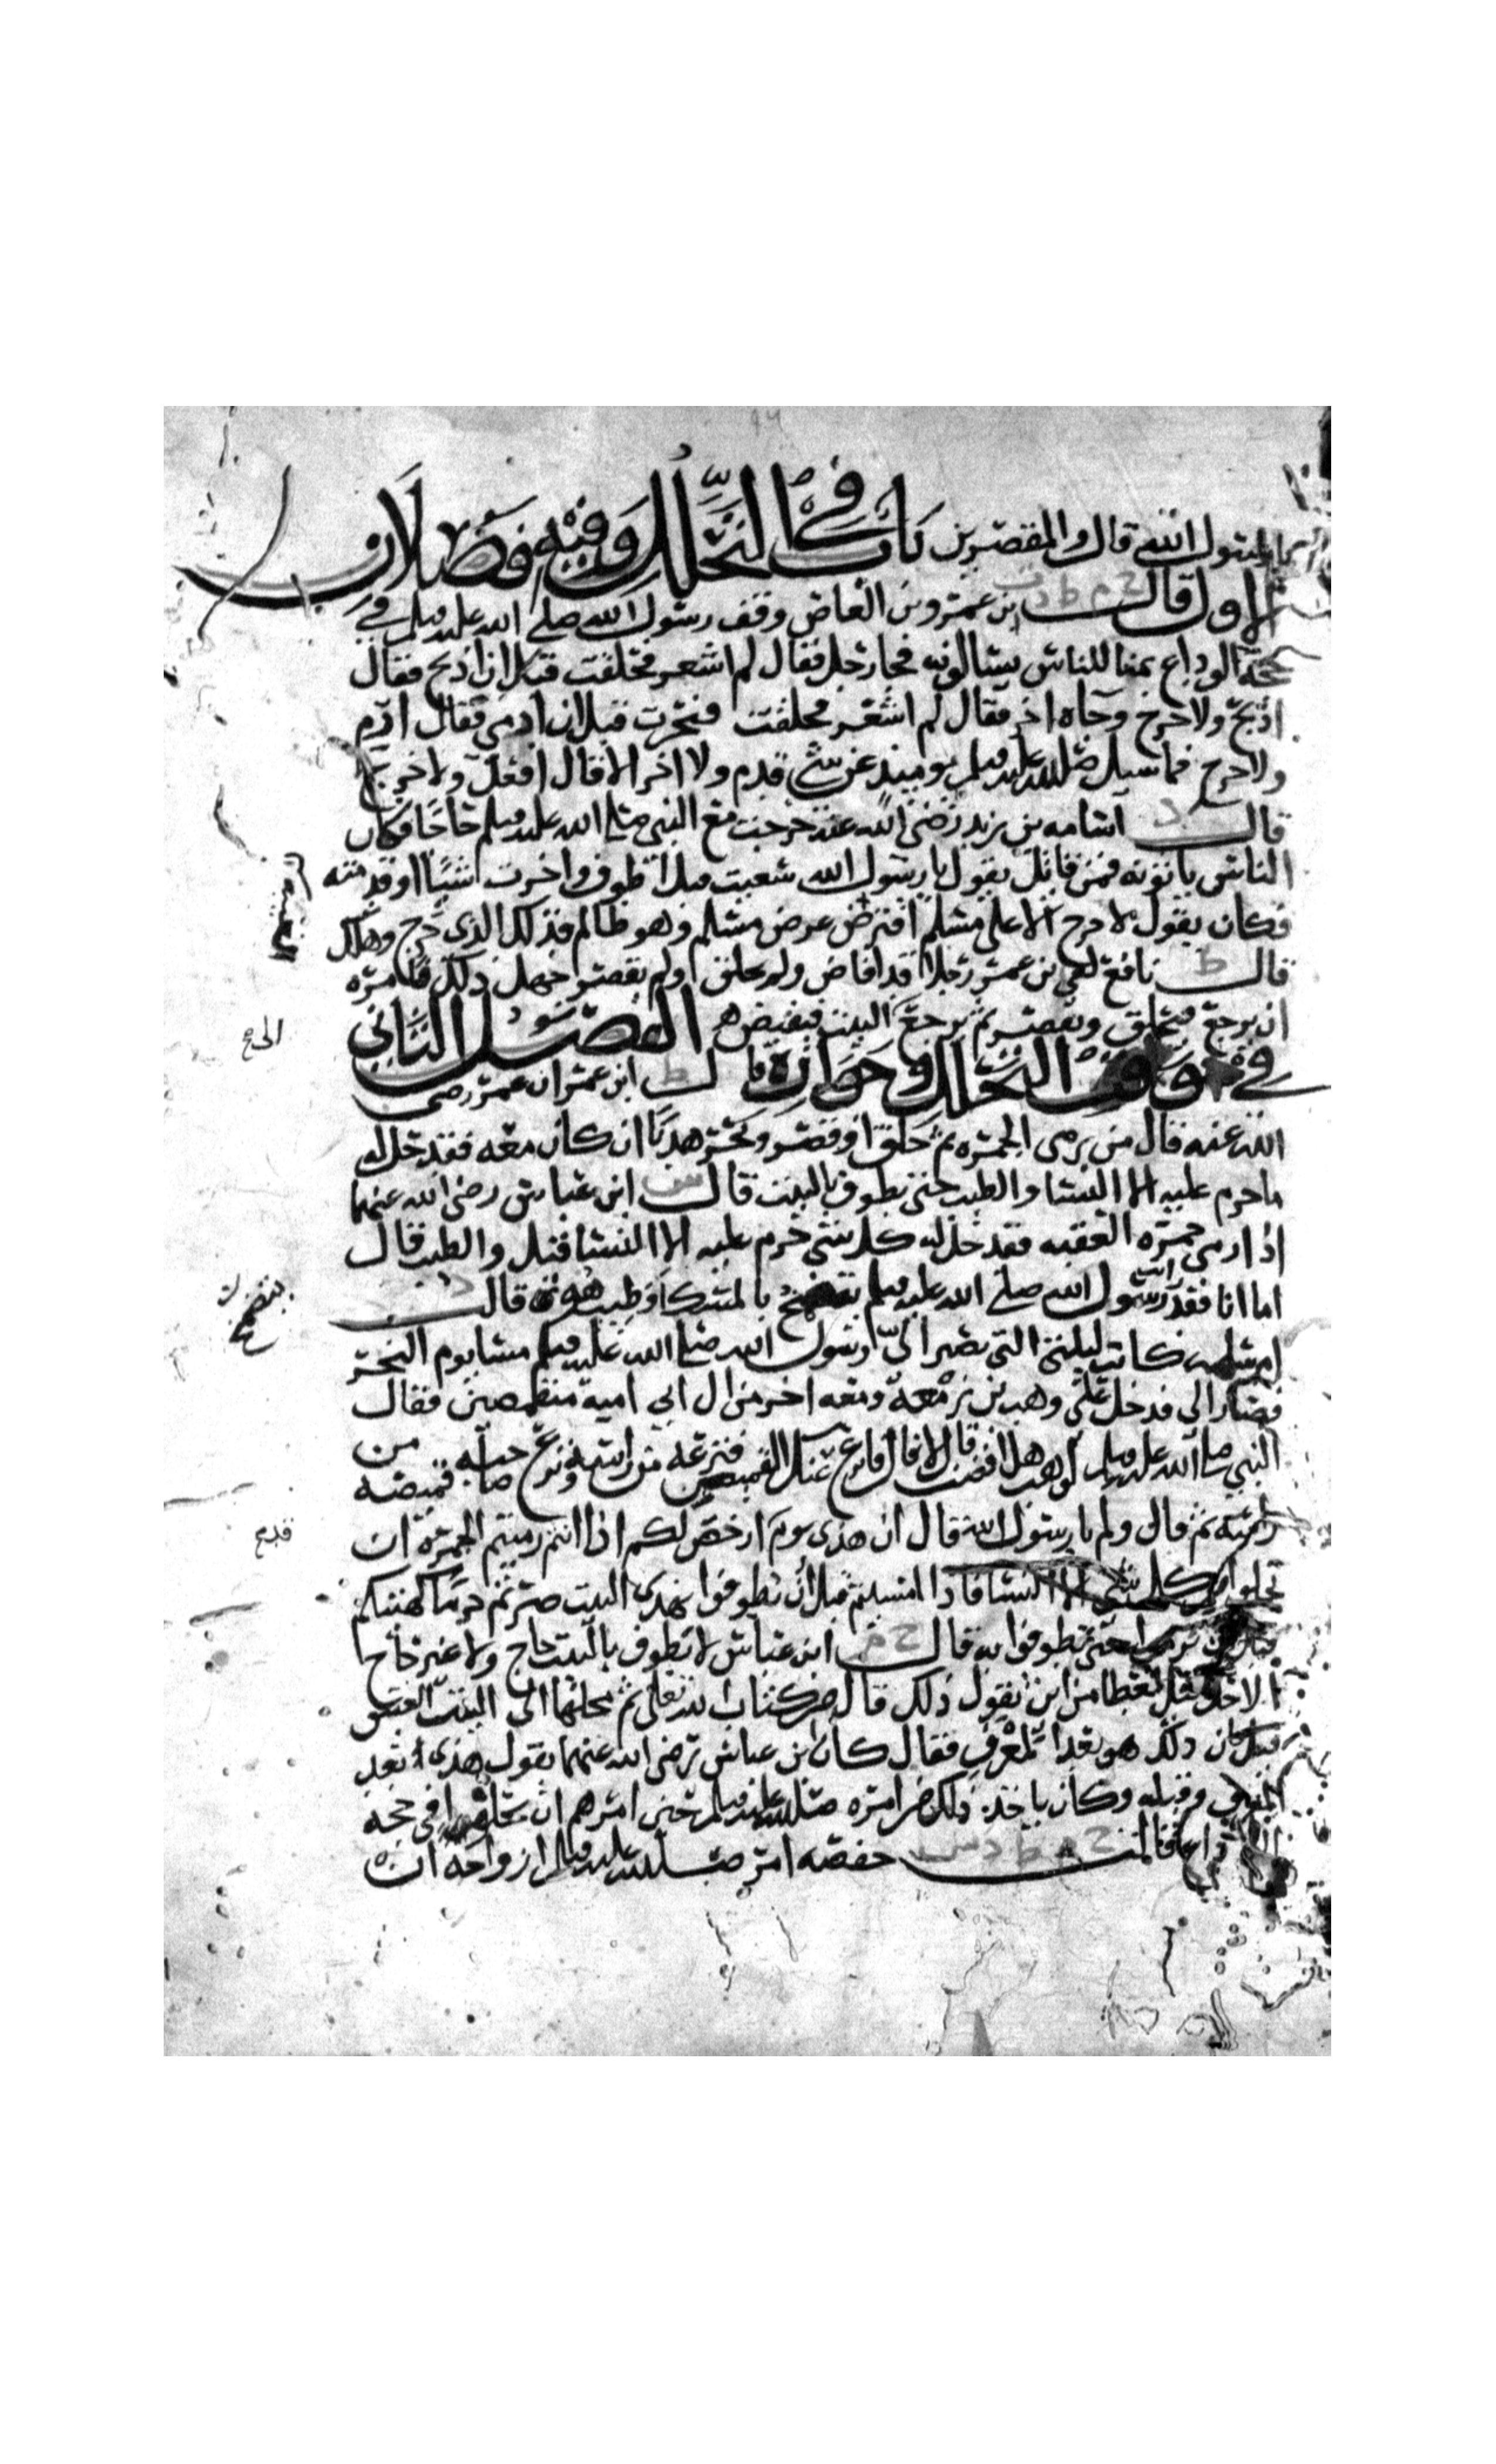 يا رسول الله قال والمقصرين باب في التحلل وفيه فصلان
الاول قال ح م ط د ت ابن عمرو بن العاص وقف رسول الله صلى الله عليه وسلم في
حجة الوداع بمنا للناس يسالونه فجا رجل فقال لم اشعر فحلقت قبل ان اذبح فقال
اذبح ولا حرج وجاه اخر فقال لم اشعر فنحرت قبل ان ارمي فقال ارم
ولا حرج فما سيل صلى الله عليه وسلم يوميذ عن شي قدم ولا اخر الا قال افعل ولا حرج
قال د اسامه بن يزيد رضي الله عنه خرجت مع النبي صلى الله عليه وسلم حاجا فكان
الناس ياتونه فمن قائل يقول يا رسول الله سعيت قبل ان اطوف واخرت اشيا او قدمته
فكان يقول لا حرج الا على مسلم افترض عرض مسلم وهو ظالم فذلك الذي حرج وهلك
قال ط نافع لقي بن عمر رجلا قد افاض ولم يحلق ولم يقصر جهل ذلك فامره
ان يرجع فيحلق ويقصر ثم يرجع البيت فيفيض الفصل الثاني
في وقت التحلل وجوازه قال ط ابن عمر ان عمر رضي
الله عنه قال من يرمى الجمره ثم حلق او قصر ونحر هديا ان كان معه فقد حل له
ما حرم عليه الا النسا والطيب حتى يطوف بالبيت قال س ابن عباس رضي الله عنهما
اذا رمى جمره العقبه فقد حل له كل شي حرم عليه الا النسا قيل والطيب قال
اما انا فقد رايت رسول الله صلى الله عليه وسلم يتضمخ بالمسك افطيب هو قال د
ام سلمه كانت ليلتي التي يصير الي رسول الله صلى الله عليه وسلم مسا يوم النحر
فصار الي فدخل علي وهب بن زمعة ومعه اخر من ال ابي امية متقمصين فقال
النبي صلى الله عليه وسلم لوهب هل افضت قال لا قال فانزع عنك القميص فنزعه من راسه ونزع صاحبه قميصه من
راسه ثم قال ولم يا رسول الله قال ان هذى يوم ارخص لكم اذا انتم رميتم الجمرة ان
تحلوا من كل شي الا النسا فاذا امسيتم قبل ان تطوفوا بهذى البيت صرتم حرما كهيئتكم
قبل ان ترموا حتى تطوفوا به قال ح م ابن عباس لا يطوف بالبيت حاج ولا غير حاج
الا حل قيل لعطا من اين يقول ذلك قال من كتاب الله تعلى ثم محلها الى البيت العتيق
قيل فان ذلك هو بعد المعرف فقال كان بن عباس رضي الله عنهما يقول هذى بعد
المعرف وقبله وكان ياخذ ذلك من امره صلى الله عليه وسلم حتى امرهم ان يحلوا في حجه
الوداع قالت ح م ط د س حفصه امر صلى الله عليه وسلم ازواجه ان
الحج
قدم